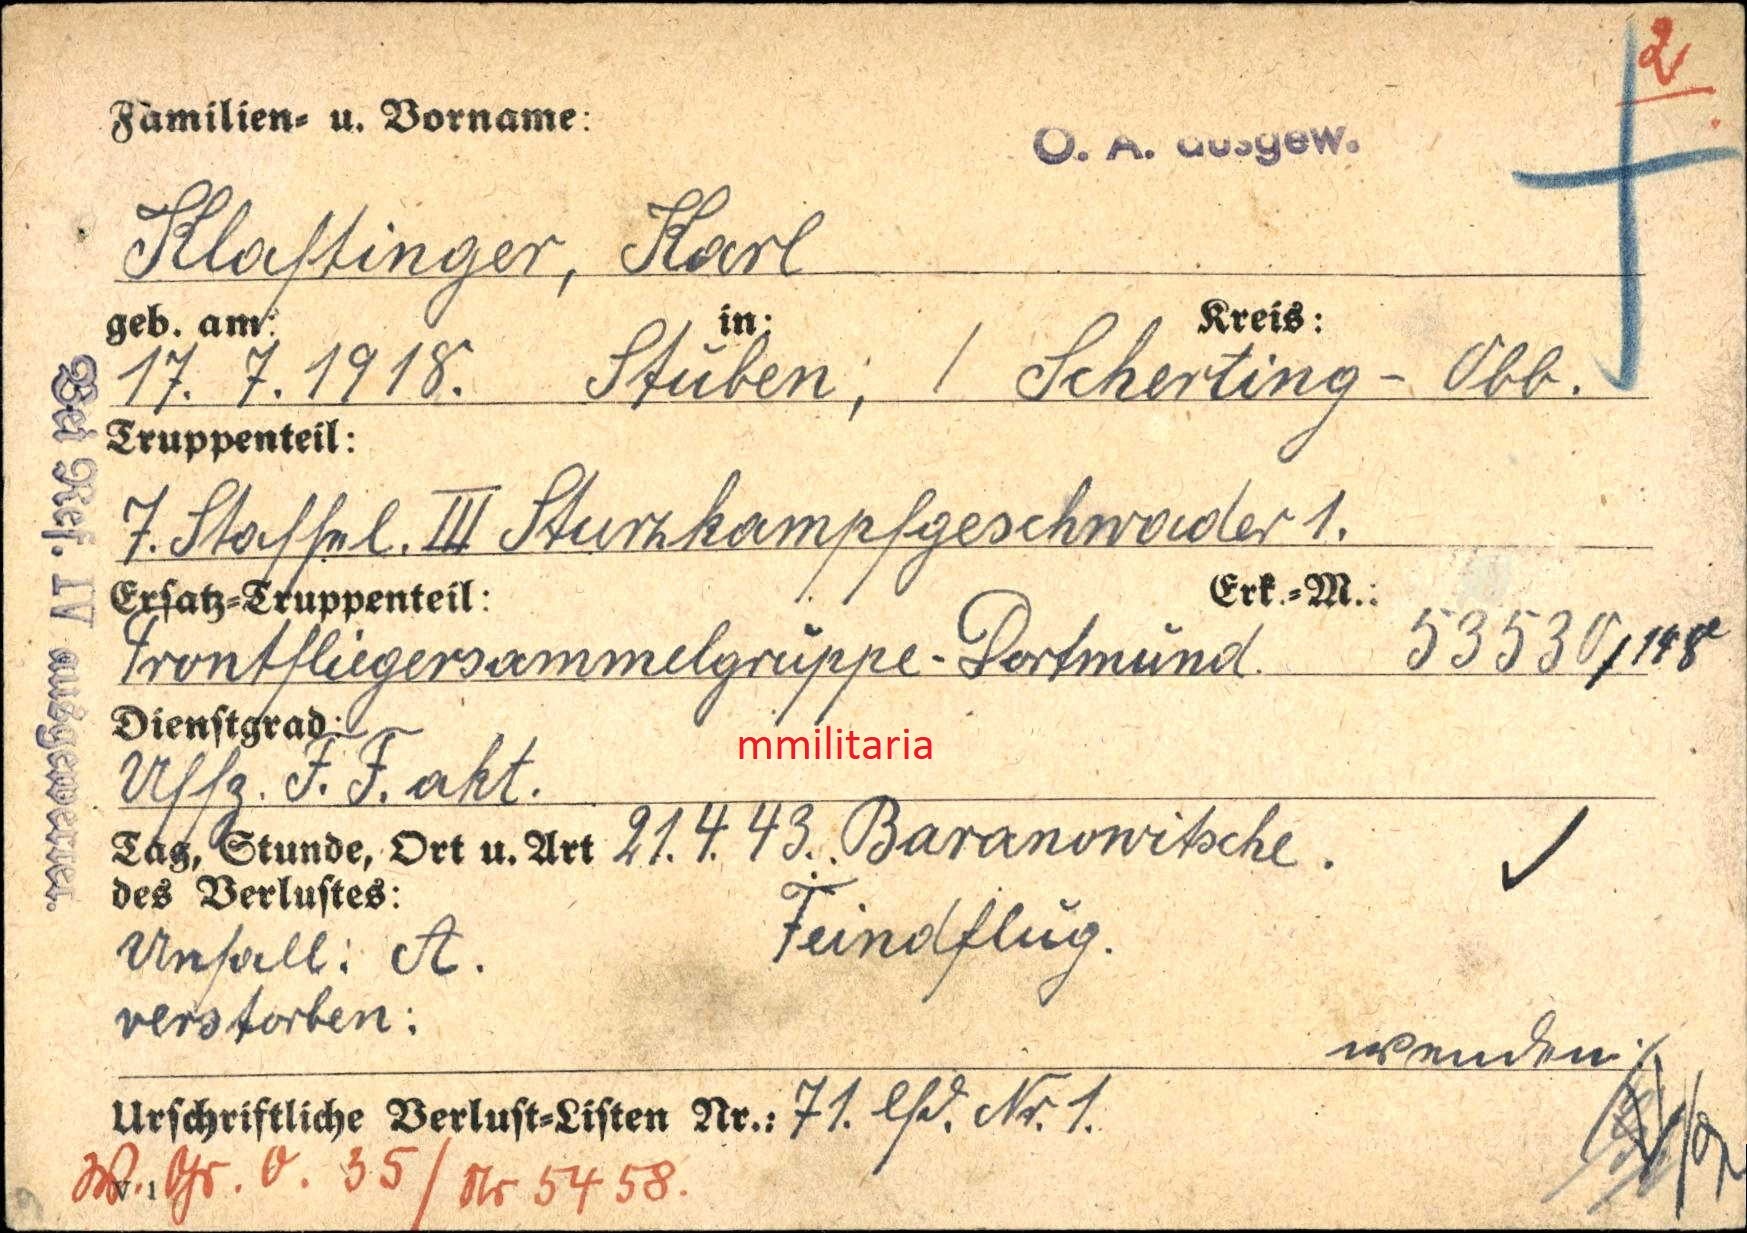 2
Familien- u. Vorname:
O. A. ausgew.
Klaftinger, Karl
geb. am: in: Kreis:
17. 7. 1918. Stuben; / Scherting - Obb.
Truppenteil:
7. Staffel. III Sturzkampfgeschwader 1.
Ersatz-Truppenteil: Erk.-M.:
Frontfliegersammelgruppe - Dortmund. 53530/148
Dienstgrad:
Uffz. F. F. akt.
mmilitaria
Tag, Stunde, Ort u. Art 21. 4. 43. Baranowitsche.
des Verlustes:
Feindflug.
Unfall: A.
verstorben:
wenden!
Urschriftliche Verlust-Listen Nr.: 71. lfd. Nr. 1.
Gr. O. 35 / Nr 5458.
V. 1
Bei Ref. IV ausgewertet.